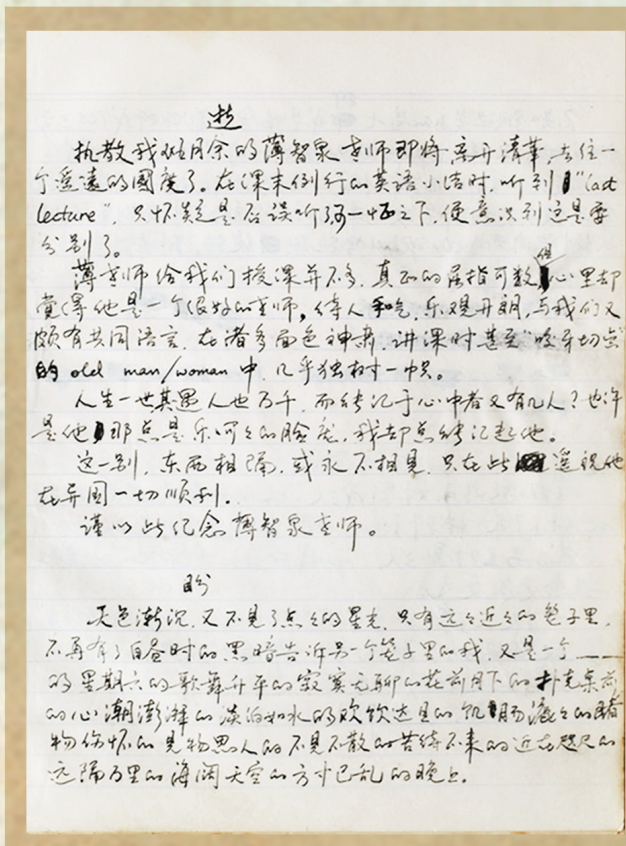 逝
执教我班月余的薄智泉老师即将离开清華,去往一
个遥远的國度了。在课末例行的英语小结时,听到"last
lecture",只怀疑是否误听了,一怔之下,便意识到这是要
分别了。
薄老师给我们授课并不多,真正的屈指可数,但心里却
觉得他是一个很好的老师,待人和气,乐观开朗,与我们又
颇有共同语言,在诸多面色神肃,讲课时甚至"咬牙切齿"
的 old man/woman 中,几乎独树一帜。
人生一世其遇人也万千,而能记于心中者又有几人?也许
是他那总是乐呵呵的脸庞,我却总能记起他。
这一别,东西相隔,或永不相见,只在此遥祝他
在异国一切顺利。
谨以此纪念薄智泉老师。
盼
天色渐沉,又不見了点点的星光,只有远远近近的笼子里,
不再有了白昼时的黑暗告诉另一个笼子里的我,又是一个____
的星期六的歌舞升平的寂寞无聊的花前月下的扑克桌前
的心潮澎湃的淡泊如水的欢饮达旦的饥肠漉漉的睹
物伤怀的見物思人的不見不散的苦待不来的近在咫尺的
远隔万里的海阔天空的方寸已乱的晚上。